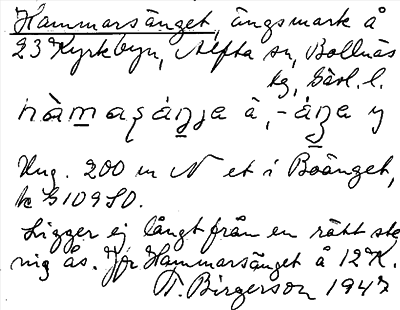 Hammarsänget, ängsmark å
23 Kyrkbyn, Alfta sn, Bollnäs
tg, Gävl. l.
hàmaʂáŋ̱ja â, -áŋ̱a y
Ung. 200 m N et i Boänget,
k G109SO.
Ligger ej långt från en rätt ste
nig ås. Jfr Hammarsänget å 12 K.
T. Birgerson 1947